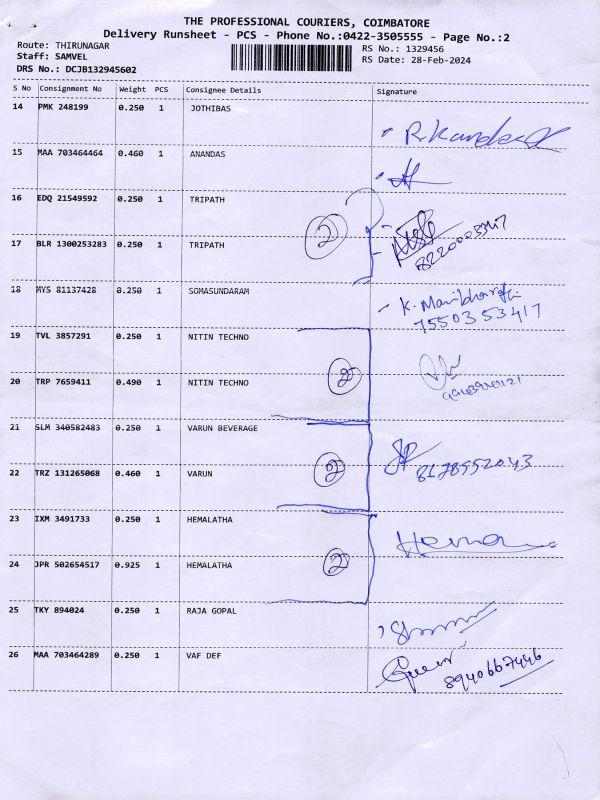 THE PROFESSIONAL COURIERS, COIMBATORE
Delivery Runsheet - PCS - Phone No.:0422-3505555 - Page No.:2
Route: THIRUNAGAR
RS No.: 1329456
Staff: SAMVEL
RS Date: 28-Feb-2024
DRS No.: DCJB132945602
S No Consignment No Weight PCS Consignee Details Signature
14 PMK 248199 0.250 1 JOTHIBAS
15 MAA 703464464 0.460 1 ANANDAS
16 EDQ 21549592 0.250 1 TRIPATH
2
17 BLR 1300253283 0.250 1 TRIPATH
8220003347
18 MYS 81137428 0.250 1 SOMASUNDARAM K. Manibharathi
7550353417
19 TVL 3857291 0.250 1 NITIN TECHNO
2
20 TRP 7659411 0.490 1 NITIN TECHNO
21 SLM 340582483 0.250 1 VARUN BEVERAGE
22 TRZ 131265068 0.460 1 VARUN 2 8178552043
23 IXM 3491733 0.250 1 HEMALATHA
Hema
24 JPR 502654517 0.925 1 HEMALATHA 2
25 TKY 894024 0.250 1 RAJA GOPAL
26 MAA 703464289 0.250 1 VAF DEF
8940667446